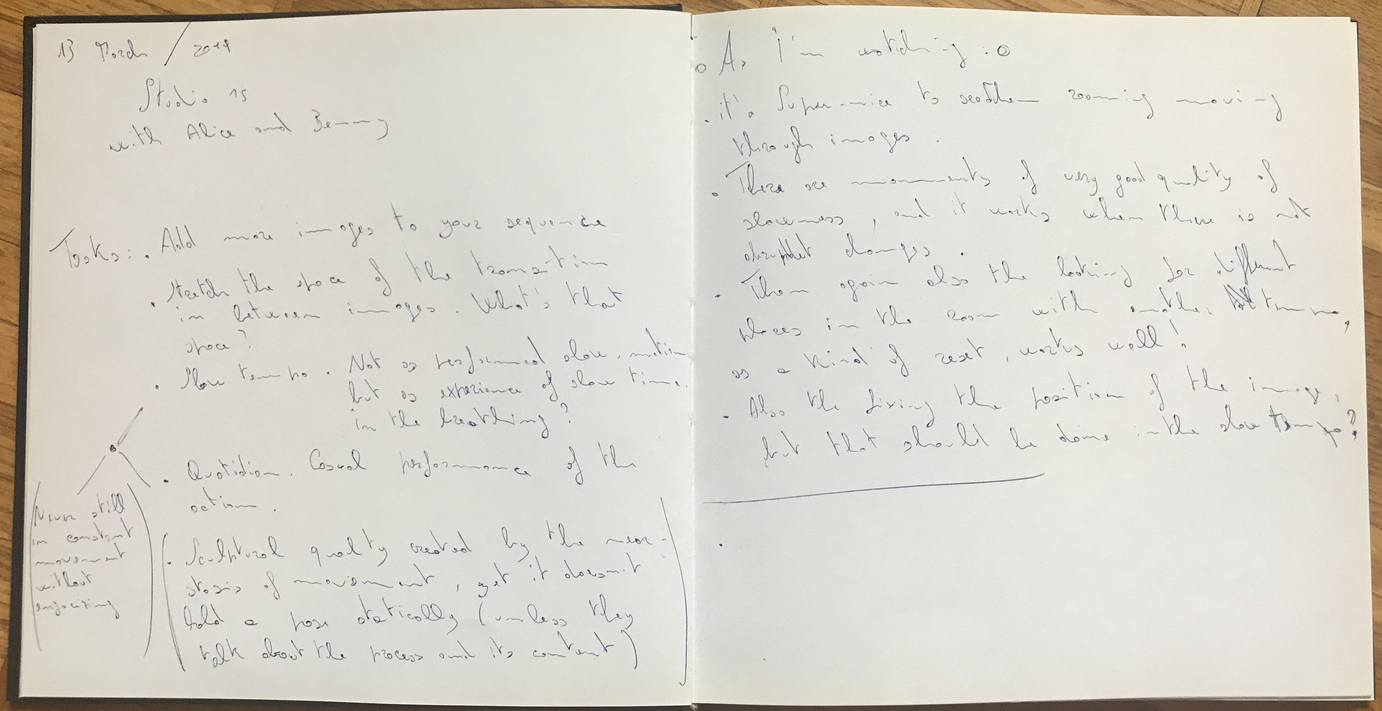 13 March / 2019
Studio 15
with Alice and Benny
Tasks: . Add more images to your sequence
. Stretch the space of the transition
in between images. What's that
space?
. Slow tempo. Not as performed slow-motion
but as experience of slow time.
in the breathing?
. Quotidian. Casual performance of the
action.
(Never still
in constant
movement
without
emphasizing)
(. Sculptural quality created by the near-
stasis of movement, yet it doesn't
hold a pose statically (unless they
talk about the process and its content)
o As I'm watching: o
. it's super-nice to see them zooming moving
through images.
. There are moments of very good quality of
slowness, and it works when there is not
abrupt changes.
. Then again also the looking for different
places in the room with another tempo,
as a kind of reset, works well!
. Also the fixing the position of the image,
but that should be done in the slow tempo?